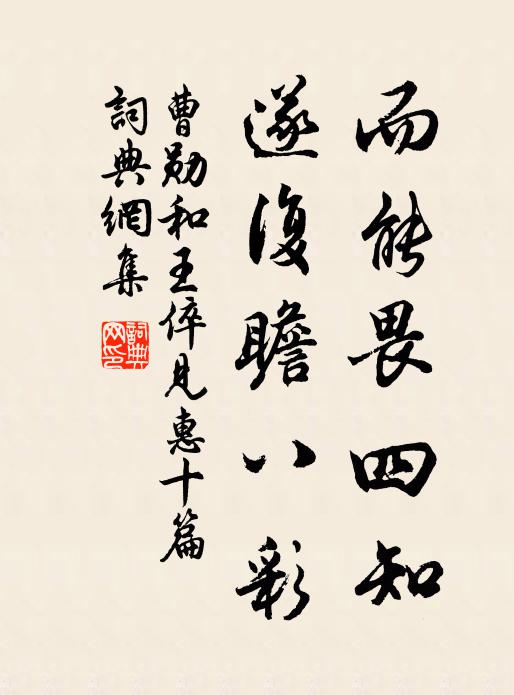 而能畏四知
遂復瞻八彩
曹勛和王倅見惠十篇
詞典網集
詞典网印